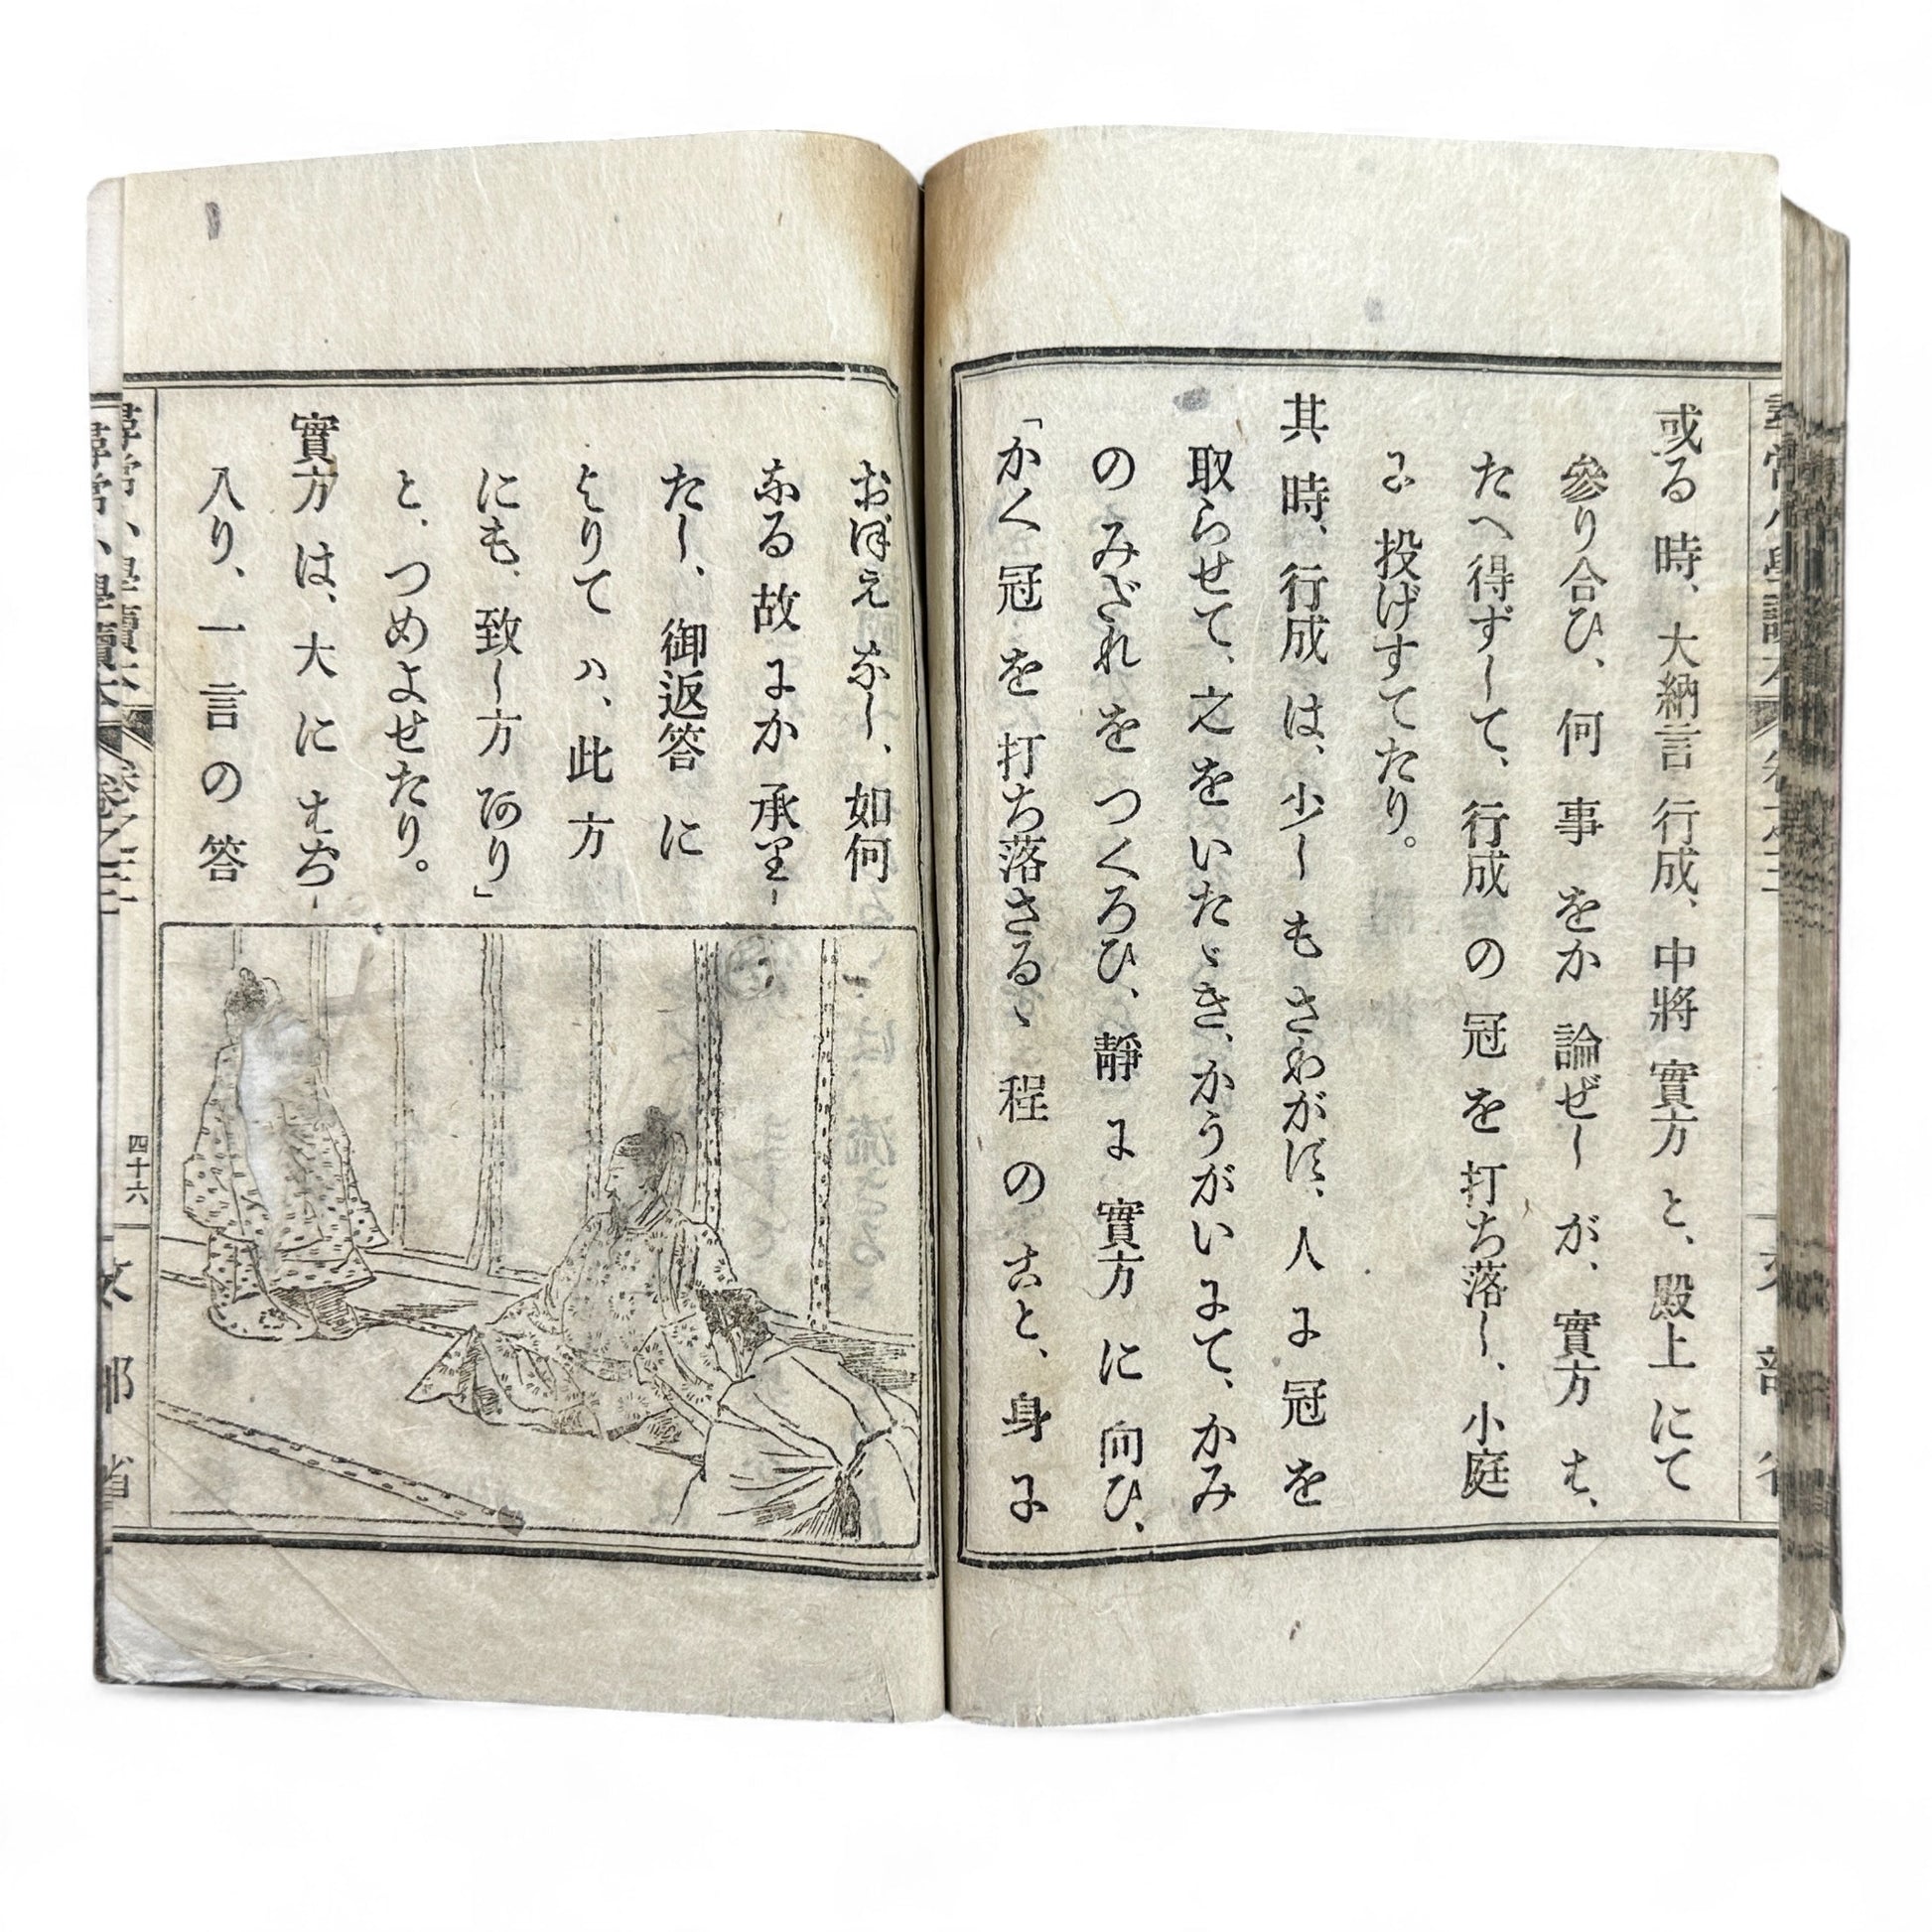 或る時、大納言行成、中將實方と、殿上にて
參り合ひ、何事をか論ぜしが、實方も、
たへ得ずして、行成の冠を打ち落し、小庭
に投げすてたり。
其時、行成は、少しもさわがず、人に冠を
取らせて、之をいたゞき、かうがいにて、かみ
のみだれをつくろひ、靜に實方に向ひ、
「かく冠を打ち落さるゝ程のこと、身に
おぼえなし、如何
なる故にか承りし
たし、御返答に
よりてハ、此方
にも、致し方あり」
と、つめよせたり。
實方は、大にはぢ
入り、一言の答
尋常小學讀本
卷之三
四十六
文部省